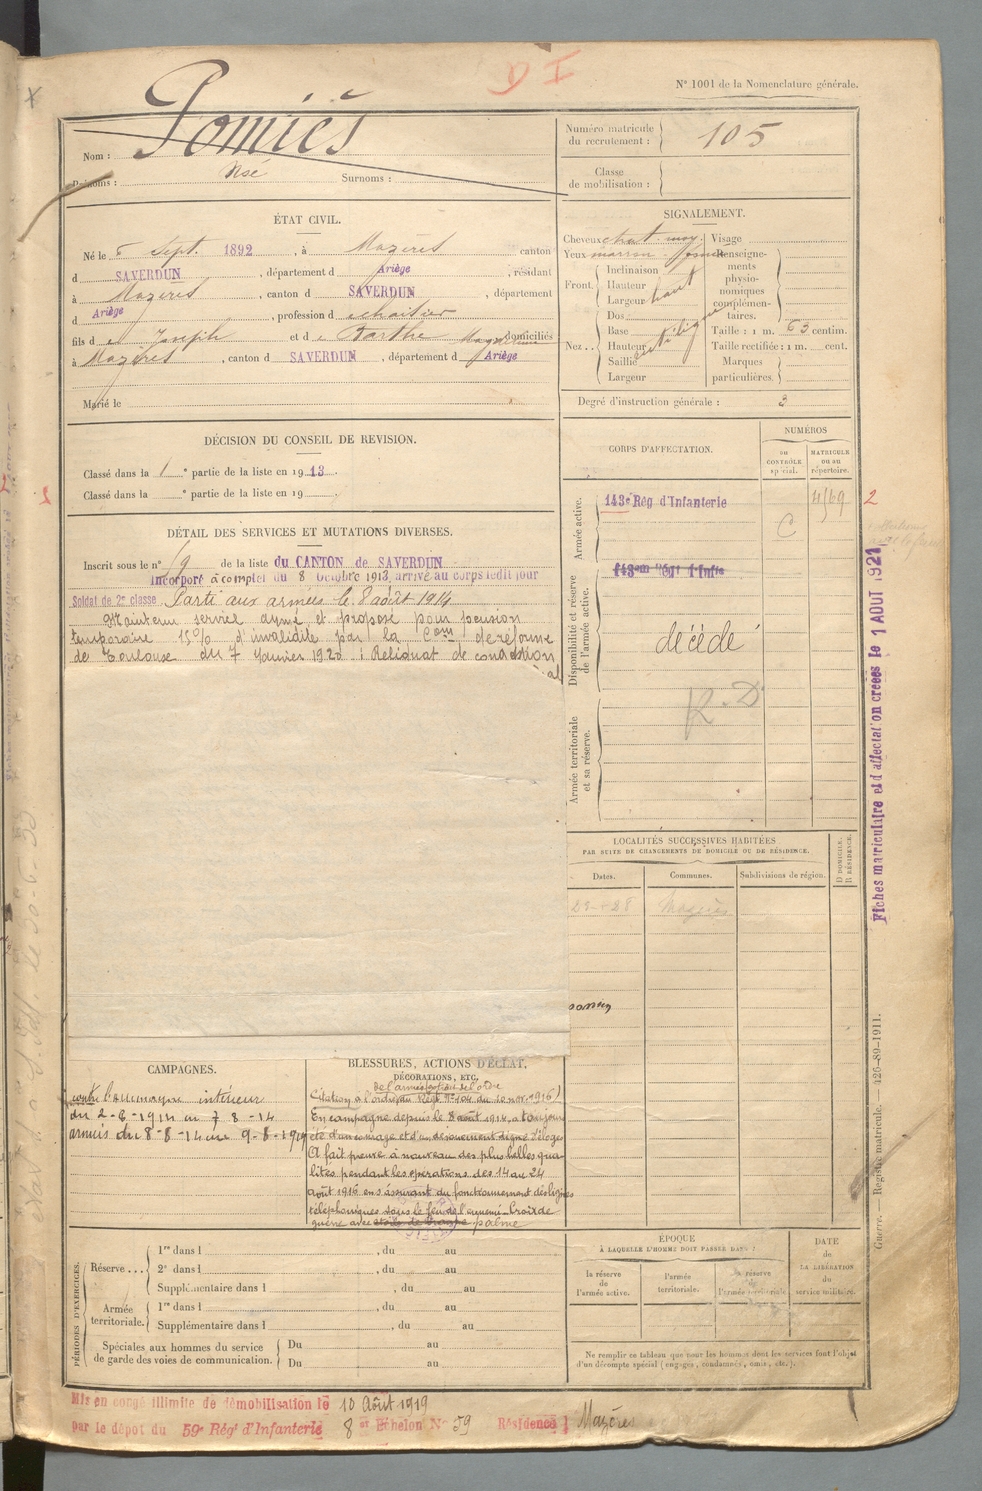 D I
N° 1001 de la Nomenclature générale.
Pomiès
Nom :
Prénoms :
Surnoms :
Numéro matricule
du recrutement :
105
Classe
de mobilisation :
ÉTAT CIVIL.
Né le 5 Sept. 1892, à Mazères canton
d SAVERDUN, département d Ariège, résidant
à Mazères, canton d SAVERDUN, département
d Ariège, profession d
fils d e Joseph et d e Barthe domiciliés
à Mazères, canton d SAVERDUN, département d Ariège
Marié le
SIGNALEMENT.
Cheveux chat. moy.
Yeux marron
Front.
Inclinaison
Hauteur
Largeur haut
Nez..
Dos
Base
Hauteur
Saillie
Largeur
Visage
Renseigne-
ments
physio-
nomiques
complémen-
taires.
Taille : 1 m. 63 centim.
Taille rectifiée : 1 m. cent.
Marques
particulières.
Degré d'instruction générale : 3
DÉCISION DU CONSEIL DE REVISION.
Classé dans la 1 e partie de la liste en 1913.
Classé dans la e partie de la liste en 19
DÉTAIL DES SERVICES ET MUTATIONS DIVERSES.
Inscrit sous le n° 19 de la liste du CANTON de SAVERDUN
Incorporé à compter du 8 Octobre 1913, arrivé au corps ledit jour
Soldat de 2e classe Parti aux armées le 8 août 1914
Maintenu service armé et proposé pour pension
temporaire 15% d'invalidité par la Com de réforme
de Toulouse du 7 Janvier 1920 : Reliquat de
CORPS D'AFFECTATION.
NUMÉROS
au
CONTRÔLE
spécial.
MATRICULE
ou au
répertoire.
Armée active.
143e Rég d'Infanterie
C
4169
2
Disponibilité et réserve
de l'armée active.
143em Rég d'Inf
décédé
R. D
Armée territoriale
et sa réserve.
Fiches matriculaire et d'affectation créées le 1 AOUT 1921
LOCALITÉS SUCCESSIVES HABITÉES
PAR SUITE DE CHANGEMENTS DE DOMICILE OU DE RÉSIDENCE.
Dates.
Communes.
Subdivisions de région.
D DOMICILE.
R RÉSIDENCE.
Mazères
CAMPAGNES.
contre l'allemagne intérieur
du 2-8-1914 au 7-8-14
armées du 8-8-14 au 9-8-1919
BLESSURES, ACTIONS D'ÉCLAT,
DÉCORATIONS, ETC.
Citation à l'ordre du Régt N° 104 du 10 nov. 1916)
En campagne depuis le 8 août 1914, a toujours
été d'un courage et d'un dévouement digne d'éloges
A fait preuve à nouveau des plus belles qua-
lités pendant les opérations des 14 au 24
août 1916 en s'assurant du fonctionnement des lignes
téléphoniques sous le feu de l'ennemi - Croix de
guerre avec étoile de bronze palme
PÉRIODES D'EXERCICES.
Réserve ...
1re dans l , du au
2e dans l , du au
Supplémentaire dans l , du au
Armée
territoriale.
1re dans l , du au
Supplémentaire dans l , du au
Spéciales aux hommes du service
de garde des voies de communication.
Du au
Du au
ÉPOQUE
À LAQUELLE L'HOMME DOIT PASSER DANS :
la réserve
de
l'armée active.
l'armée
territoriale.
la réserve
de
l'armée territoriale.
DATE
de
LA LIBÉRATION
du
service militaire.
Ne remplir ce tableau que pour les hommes dont les services font l'objet
d'un décompte spécial (engagés, condamnés, omis, etc.).
Guerre. — Registre matricule. — 426-89-1911.
Mis en congé illimité de démobilisation le 10 Août 1919
par le dépôt du 59e Rég d'Infanterie 8e Echelon N° 59 Résidence Mazères